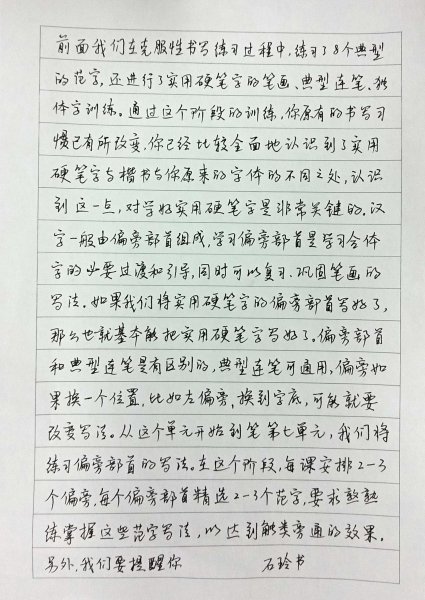 前面我们在克服性书写练习过程中,练习了8个典型
的范字,还进行了实用硬笔字的笔画、典型连笔、独
体字训练。通过这个阶段的训练,你原有的书写习
惯已有所改变,你已经比较全面地认识到了实用
硬笔字与楷书与你原来的字体的不同之处,认识
到这一点,对学好实用硬笔字是非常关键的,汉
字一般由偏旁部首组成,学习偏旁部首是学习合体
字的必要过渡和引导,同时可以复习、巩固笔画的
写法。如果我们将实用硬笔字的偏旁部首写好了,
那么也就基本能把实用硬笔字写好了。偏旁部首
和典型连笔是有区别的,典型连笔可通用,偏旁如
果换一个位置,比如左偏旁,换到字底,可能就要
改变写法。从这个单元开始到笔第七单元,我们将
练习偏旁部首的写法。在这个阶段,每课安排2-3
个偏旁,每个偏旁部首精选2-3个范字,要求熟熟
练掌握这些范字写法,以达到触类旁通的效果。
另外,我们要提醒你 石玲书